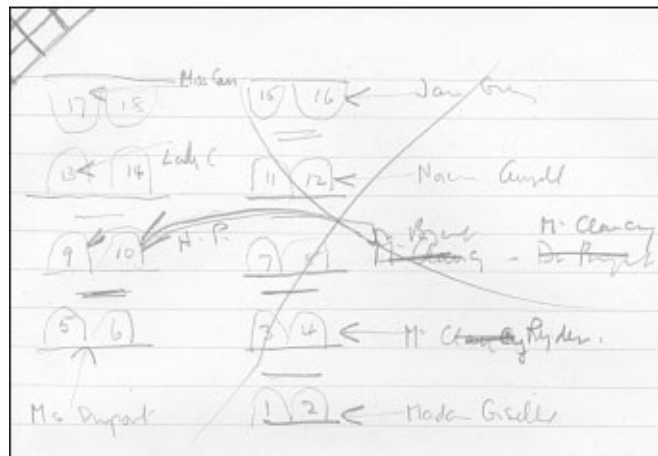 17 18 Miss Carr 15 16 Jane Grey
13 14 Lady C 11 12 Norman
9 10 H. P. 7 8 Dr. Bryant Mr Clancy
Mr Clancy - Dr Bryant
5 6 3 4 Mr Clancy Ryder.
Ms Dupont 1 2 Madam Giselle